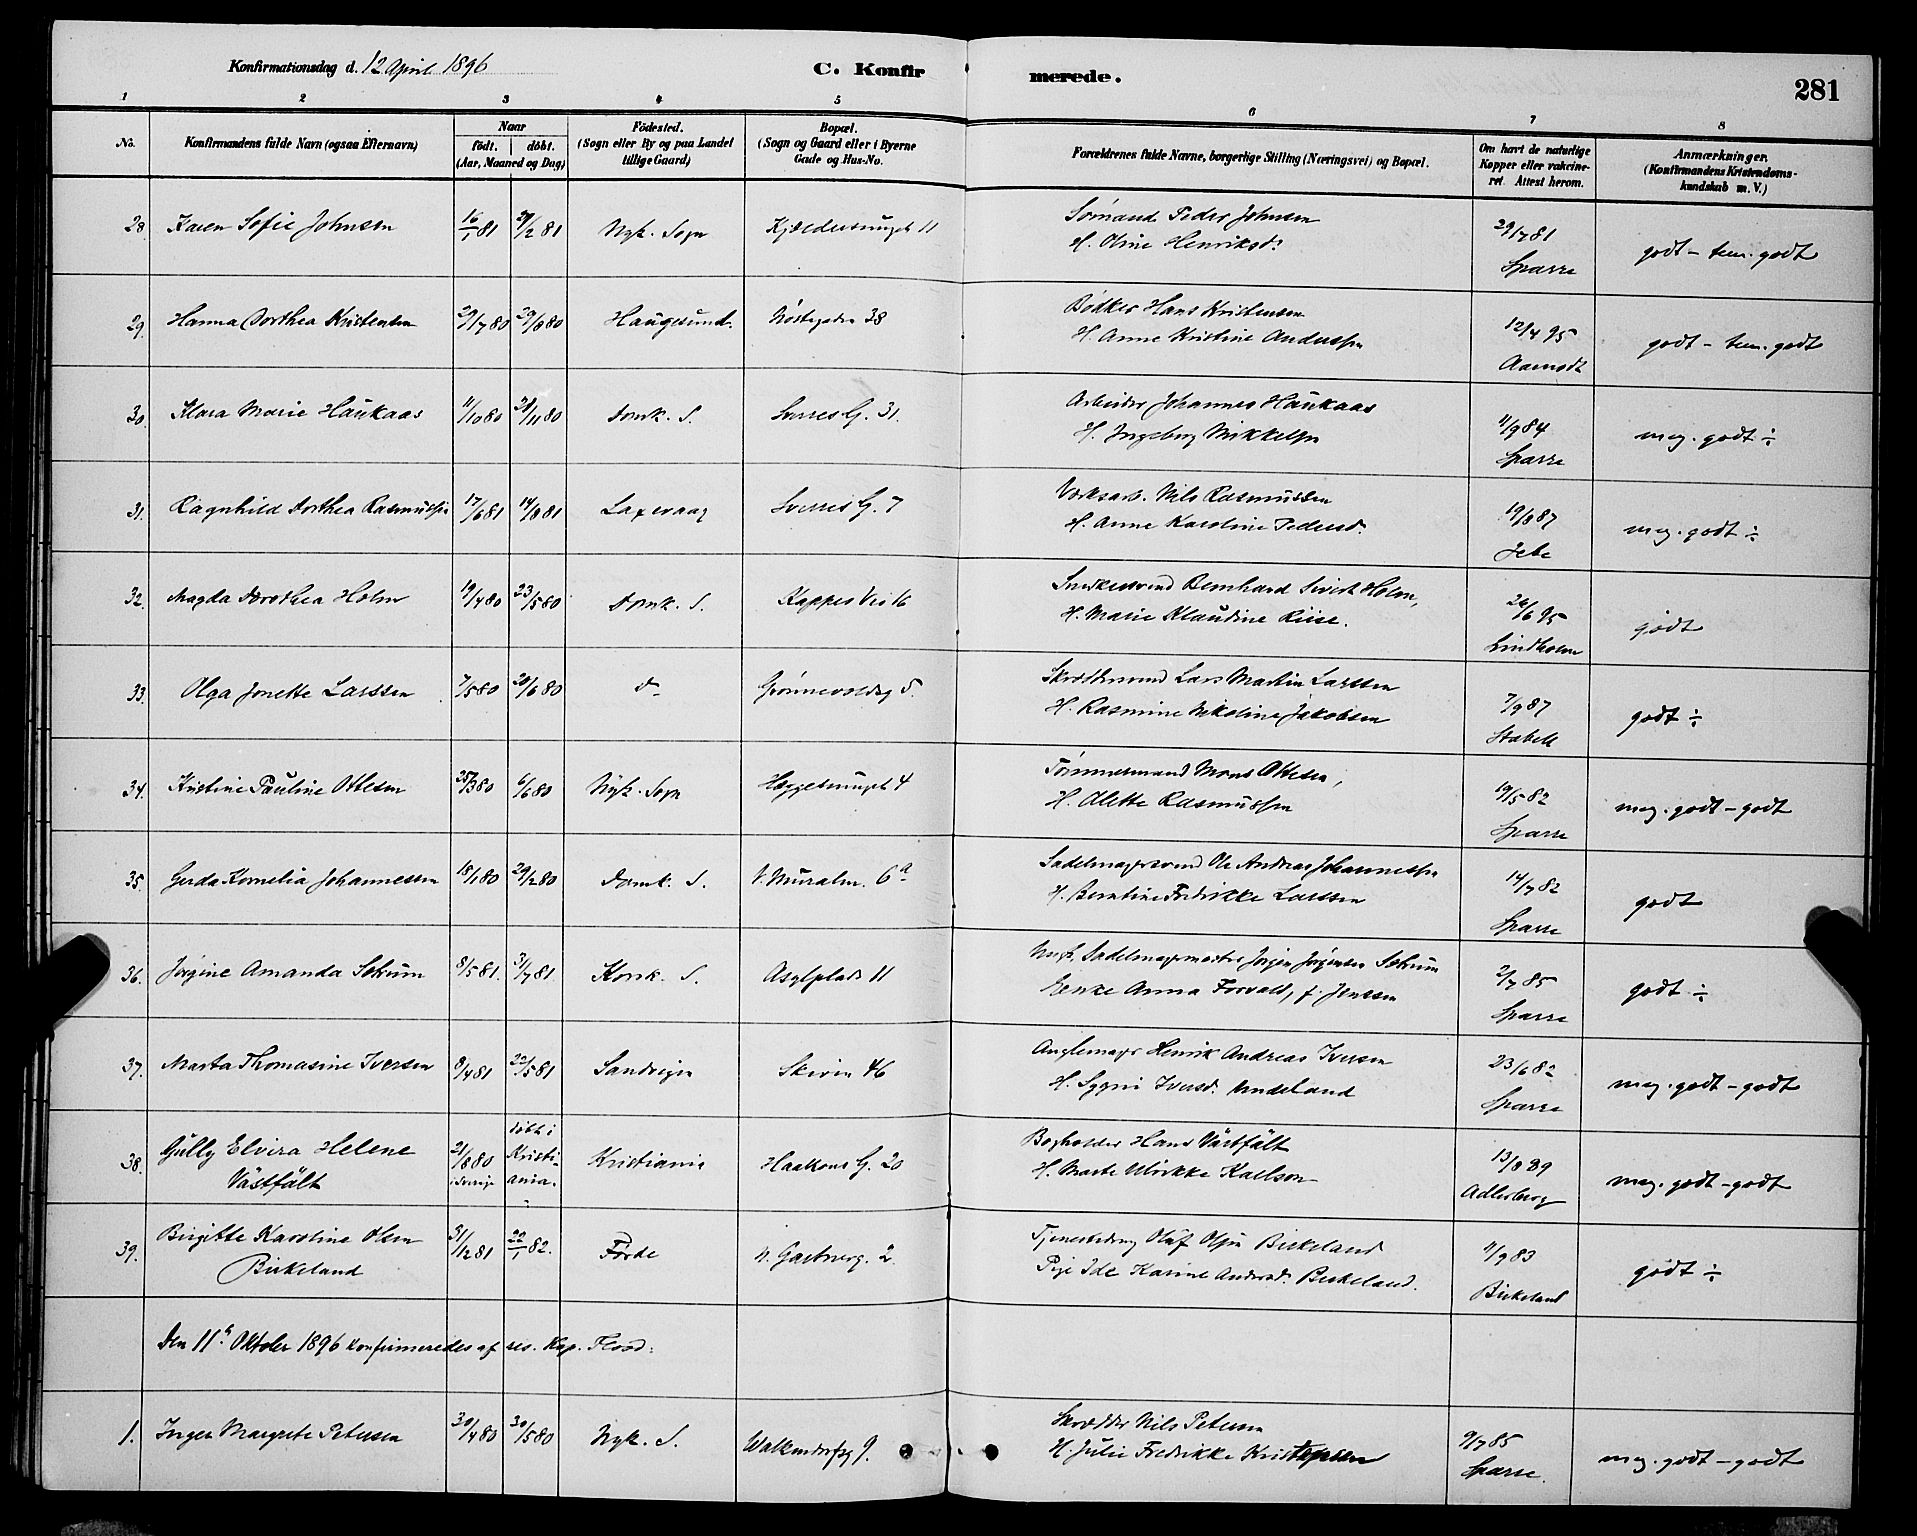 Konfirmationsdag d. 12 April 1896
C. Konfirmerede.
281
1 2 3 4 5 6 7 8
No.
Konfirmandens fulde Navn (ogsaa Efternavn)
Naar
födt. döbt.
(Aar, Maaned og Dag)
Födested.
(Sogn eller By og paa Landet
tillige Gaard)
Bopæl.
(Sogn og Gaard eller i Byerne
Gade og Hus-No.
Forældrenes fulde Navne, borgerlige Stilling (Næringsvei) og Bopæl.
Om havt de naturlige
Kopper eller vakcine-
ret. Attest herom.
Anmærkninger.
(Konfirmandens Kristendoms-
kundskab m. V.)
28. Karen Sofie Johnsen 16/1 81 27/2 81 Nyk. Sogn Kjeldersmuget 11 Sömand Peder Johnsen 29/7 81 godt - tem. godt
H. Oline Henriksd. Sparre
29. Hanna Dorthea Kristensen 29/7 80 29/8 80 Haugesund. Nöstegaden 38 Bödker Hans Kristensen 12/4 95 godt - tem. godt
H. Anne Kristine Anderssen Aamodt
30. Klara Marie Haukaas 11/10 80 28/11 80 Domk. S. Sverres G. 31. Arbeider Johannes Haukaas 11/9 84 meg. godt ÷
H. Ingeborg Mikkelsen Sparre
31. Ragnhild Dorthea Rasmussen 17/6 81 14/8 81 Laxevaag Sverres G. 7 Værksarb. Nils Rasmussen 19/8 87 meg. godt ÷
H. Anne Karoline Pedersd. Jebe
32. Magda Dorothea Holm 19/4 80 23/5 80 Domk. S. Kappes Vei 16 Snedkersvend Bernhard Sivert Holm, 26/6 95 godt
H. Marie Klaudine Riise. Lindholm
33. Olga Jonette Larssen 7/5 80 20/6 80 do Grönnevoldsg 5. Skræddersvend Lars Martin Larssen 7/9 87 godt ÷
H. Rasmine Nikoline Jakobsen Stabell
34. Kristine Pauline Ottesen 25/3 80 6/6 80 Nyk. Sogn Heggesmuget 4 Tömmermand Mons Ottesen, 19/5 82 meg. godt - godt
H. Olette Rasmussen Sparre
35. Gerda Kornelia Johannesen 18/1 80 29/2 80 Domk. S. V. Muralm. 6a Sadelmagersvend Ole Andreas Johannessen 14/7 82 godt
H. Berntine Fredrikke Larssen Sparre
36. Jörgine Amanda Sætrum 8/5 81. 31/7 81. Korsk. S. Asylplads 11 Sadelmagermester Jörgen Jörgensen Sætrum 2/7 85 godt ÷
Enke Anna Torvald, f. Jenssen Sparre
37. Marta Thomasine Iversen 8/4 81 22/5 81 Sandvigen Skiven 46 Anglemager Henrik Andreas Iversen 23/6 82 meg. godt - godt
H. Sygni Iversd. Undeland Sparre
38. Gully Elvira Helene 21/8 80 döbt i Kristiania Haakons G. 20 Bogholder Hans Västfält 13/8 89 meg. godt - godt
Västfält i Sverige Kristi- H. Marte Ulrikke Karlson Adlersberg
ania.
39. Birgitte Karoline Olsen 31/12 81 22/1 82. Förde N. Gartnerg. 2 Tjenestedreng Olaf Olsen Birkeland 11/9 83 godt ÷
Birkeland Pige Ide Karine Andersd. Birkeland. Birkeland
Den 11te Oktober 1896 konfirmeredes af res. Kap. Flood:
1. Inger Margrete Petersen 30/4 80 30/5 80 Nyk. S. Walkendorfsg 9. Skrædder Nils Petersen 9/7 85 meg. godt - godt
H. Julie Fredrikke Kristophersen Sparre.